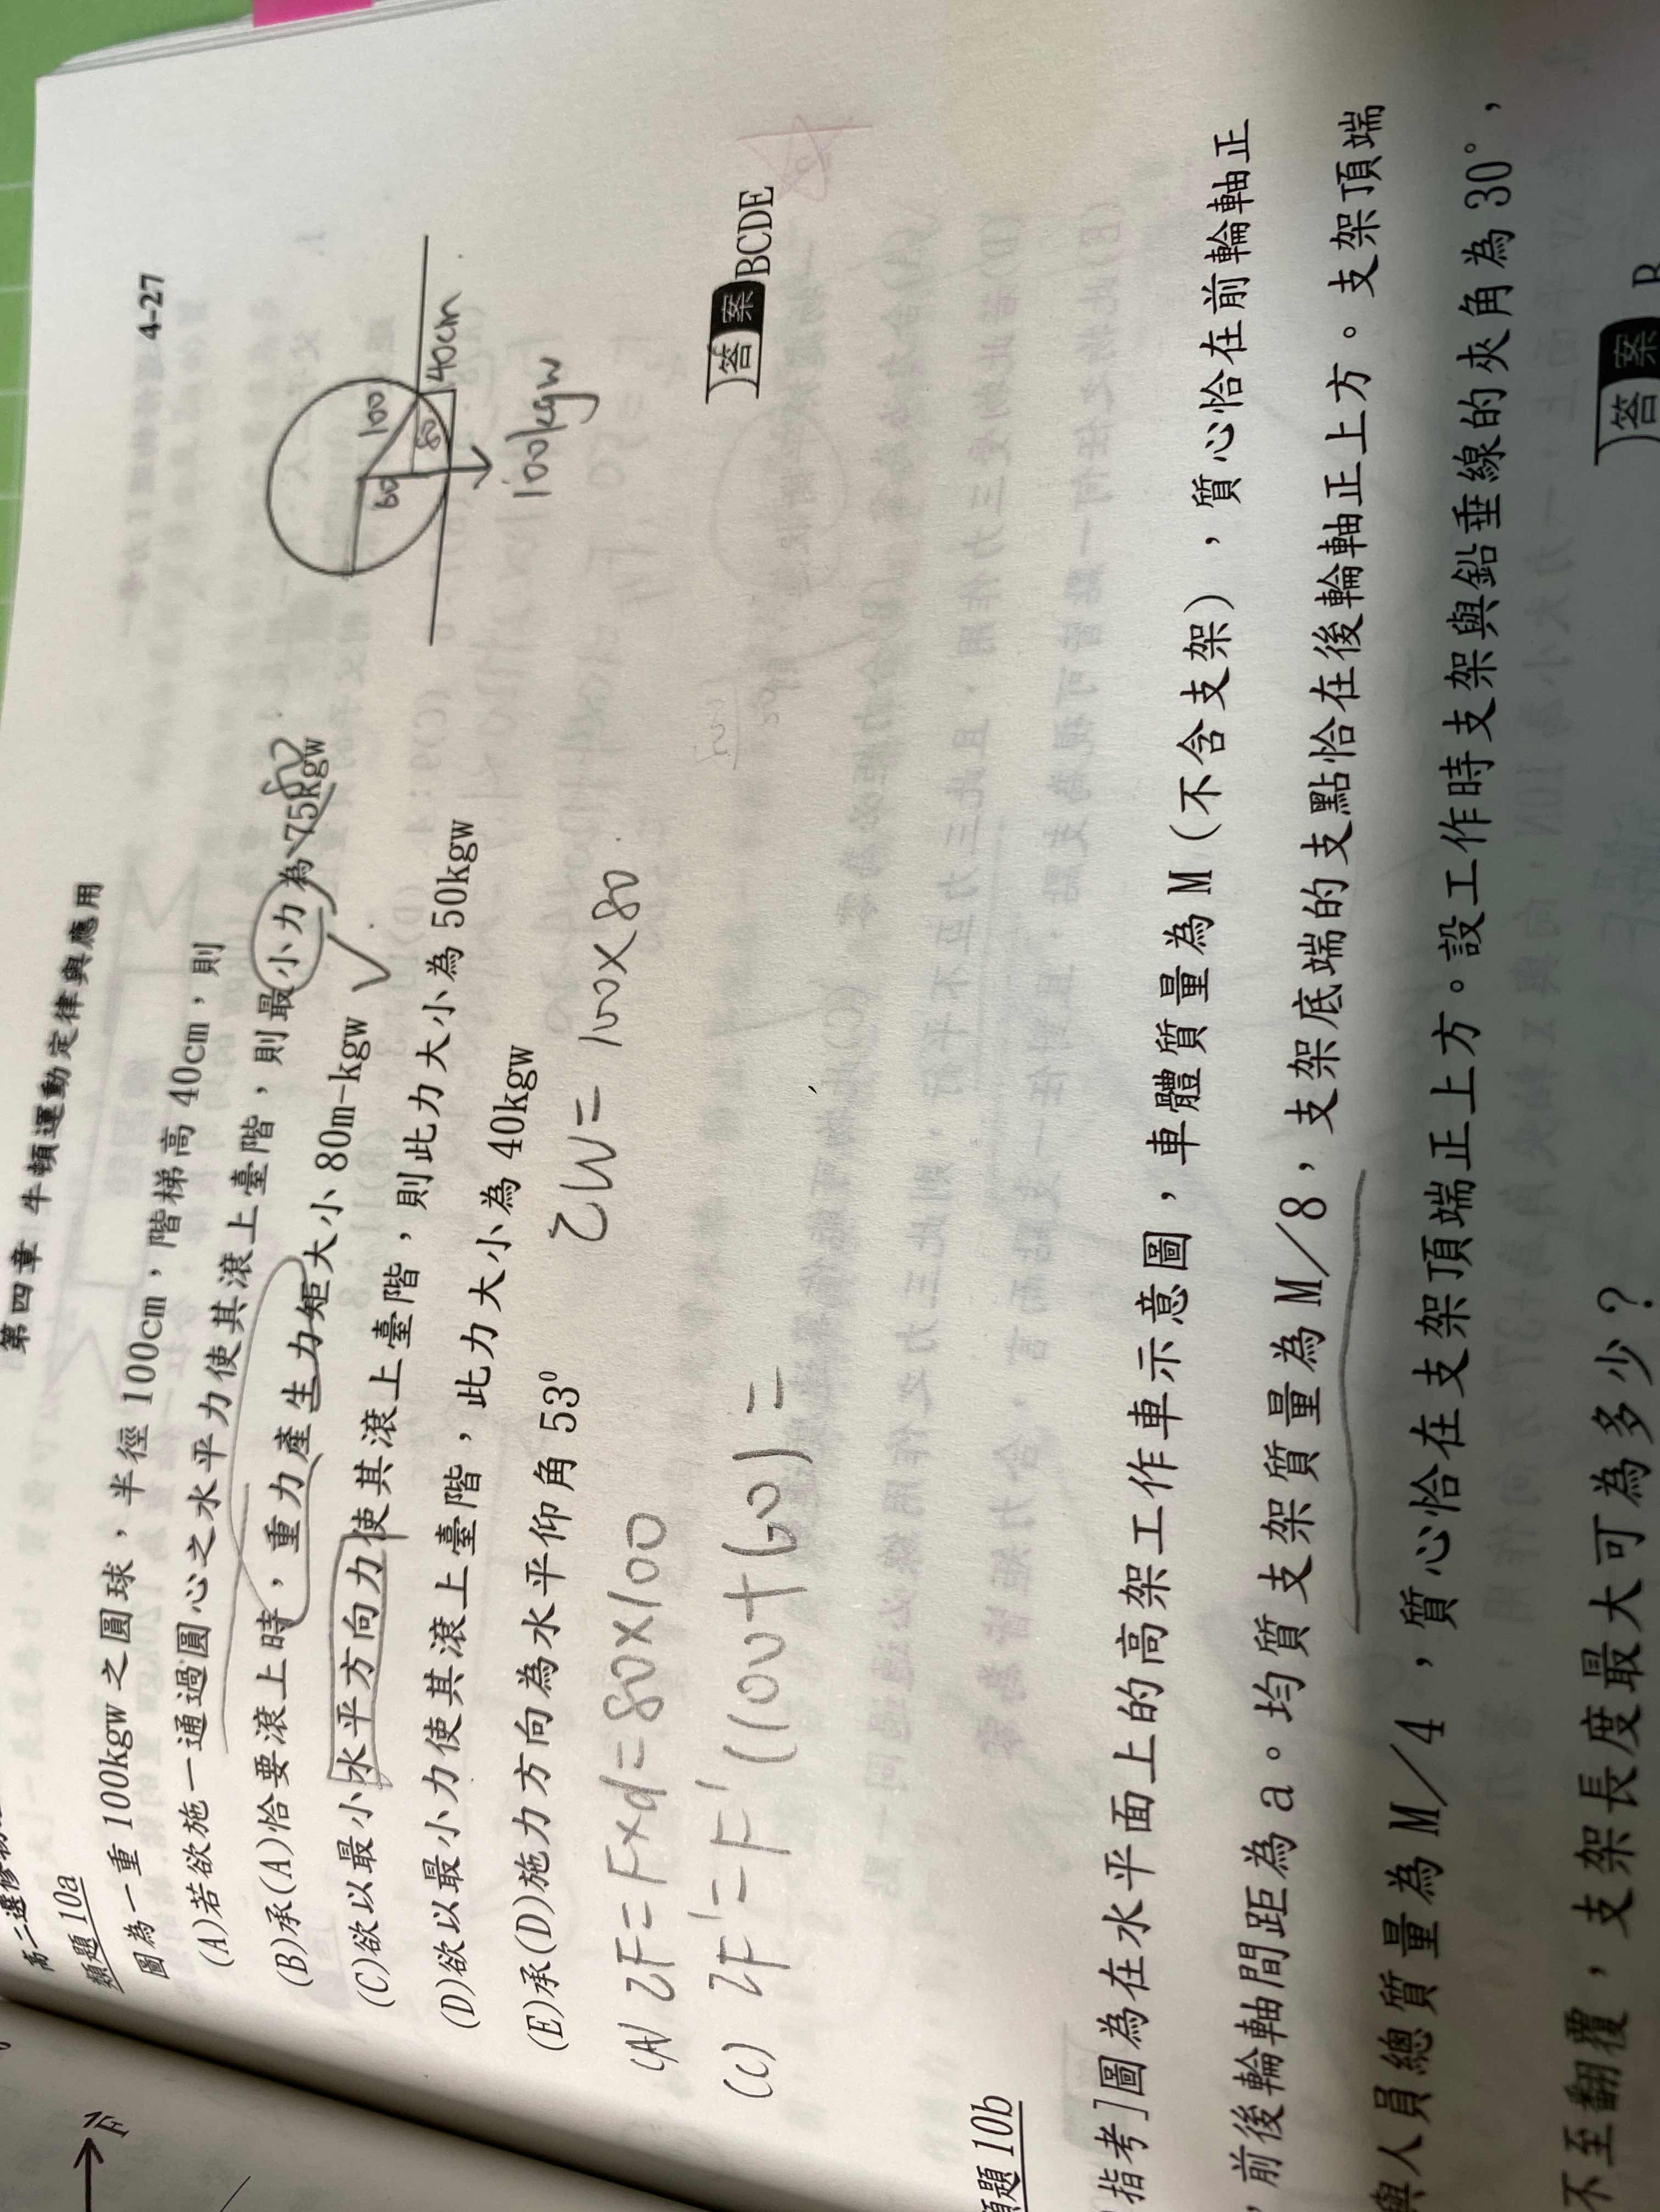 第四章 牛頓運動定律與應用
4-27
類題 10a
圖為一重 100kgw 之圓球，半徑 100cm，階梯高 40cm，則
(A)若欲施一通過圓心之水平力使其滾上臺階，則最小力為 75kgw
(B)承(A)恰要滾上時，重力產生力矩大小 80m-kgw
(C)欲以最小水平方向力使其滾上臺階，則此力大小為 50kgw
(D)欲以最小力使其滾上臺階，此力大小為 40kgw
(E)承(D)施力方向為水平仰角 53⁰
100
60
80
40cm
100kgw
τW = 100×80
(A) τF = F×d = 80×100
(C) τF' = F'(100+60) =
答案 BCDE
類題 10b
指考]圖為在水平面上的高架工作車示意圖，車體質量為 M（不含支架），質心恰在前輪軸正
，前後輪軸間距為 a。均質支架質量為 M／8，支架底端的支點恰在後輪軸正上方。支架頂端
與人員總質量為 M／4，質心恰在支架頂端正上方。設工作時支架與鉛垂線的夾角為 30°，
不至翻覆，支架長度最大可為多少？
答案
F